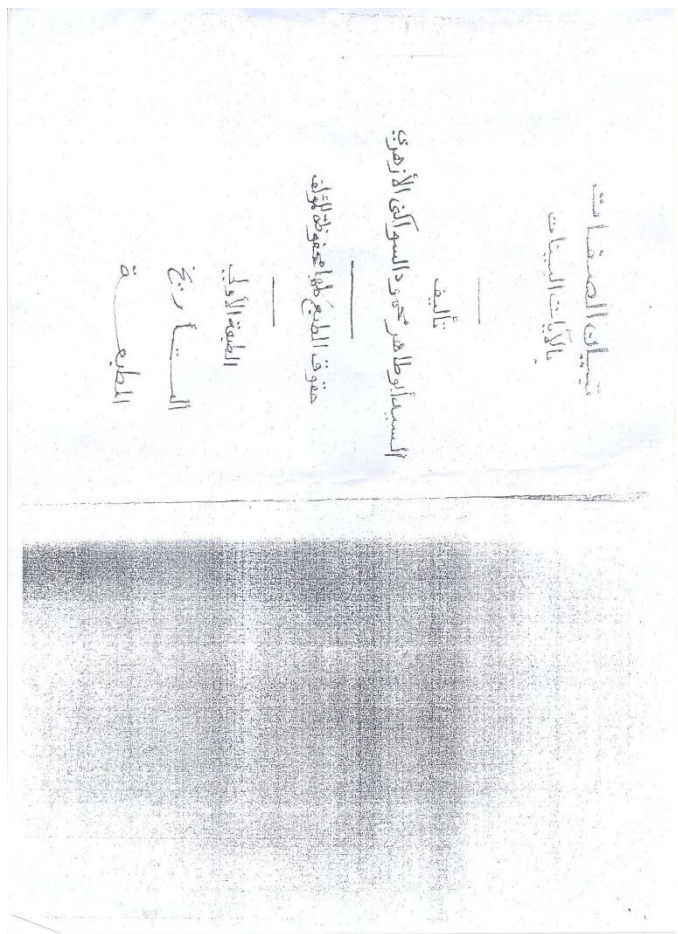 تبيان الصفات
بالآيات البينات
تأليف
السيد أبو طاهر محمود السواكني الأزهري
حقوق الطبع كلها محفوظة للمؤلف
الطبعة الأولى
التأريخ
المطبعة